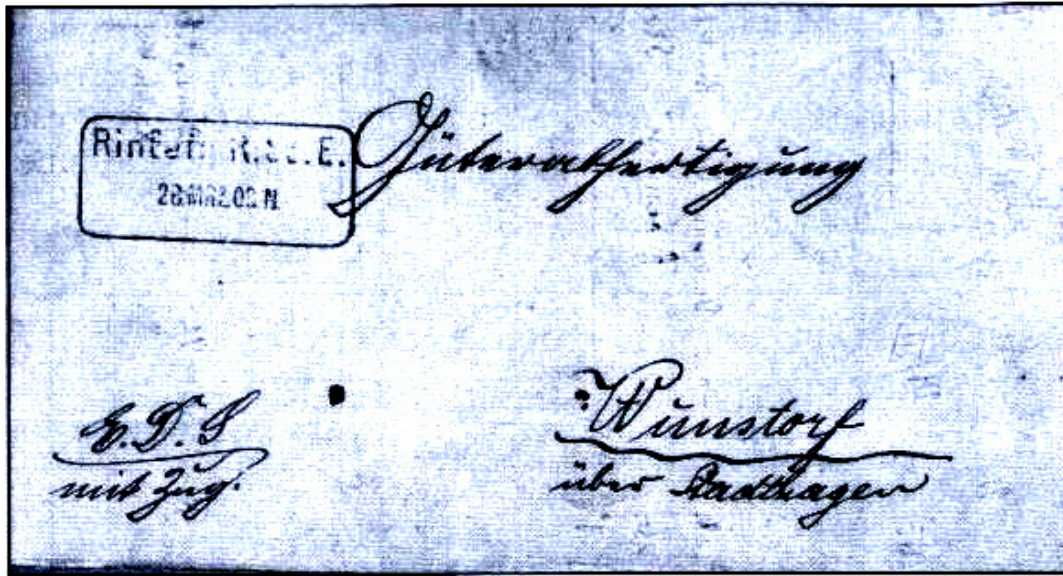 Rinteln
Güterabfertigung
E. D. S
mit Zug.
Wunstorf
über Stadthagen